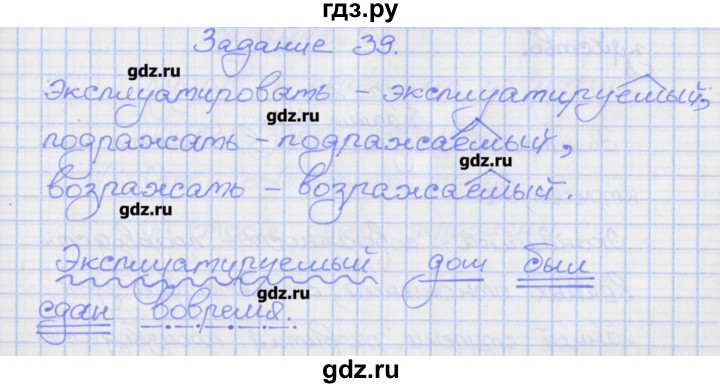 гдз.ру
Задание 39.
gdz.ru
Эксплуатировать – эксплуатируемый,
gdz.ru
подражать – подражаемый,
gdz.ru
возражать – возражаемый.
gdz.ru
Эксплуатируемый дом был
gdz.ru
сдан вовремя.
gdz.ru